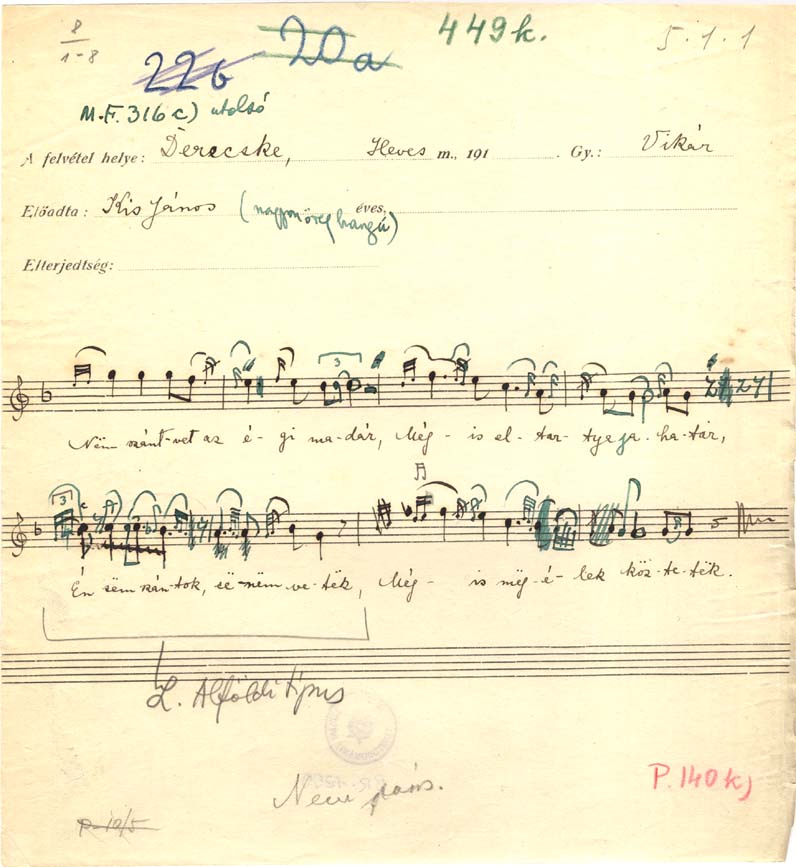 8
1-8
22b 20a 449k. 5.1.1
M.F. 316 c) utolsó
A felvétel helye: Derecske, Heves m., 191 . Gy.: Vikár
Előadta: Kis János (nagyon öreg hangú) éves.
Elterjedtség:
3
Nëm szánt-vet az é-gi ma-dár, Még-is el-tar-tya ja ha-tár,
3
Én sëm szán-tok, së nëm ve-tëk, Még-is mëg-é-lek köz-te-tëk.
L. Alföldi típus
Nem
P. 140k)
P 10/5